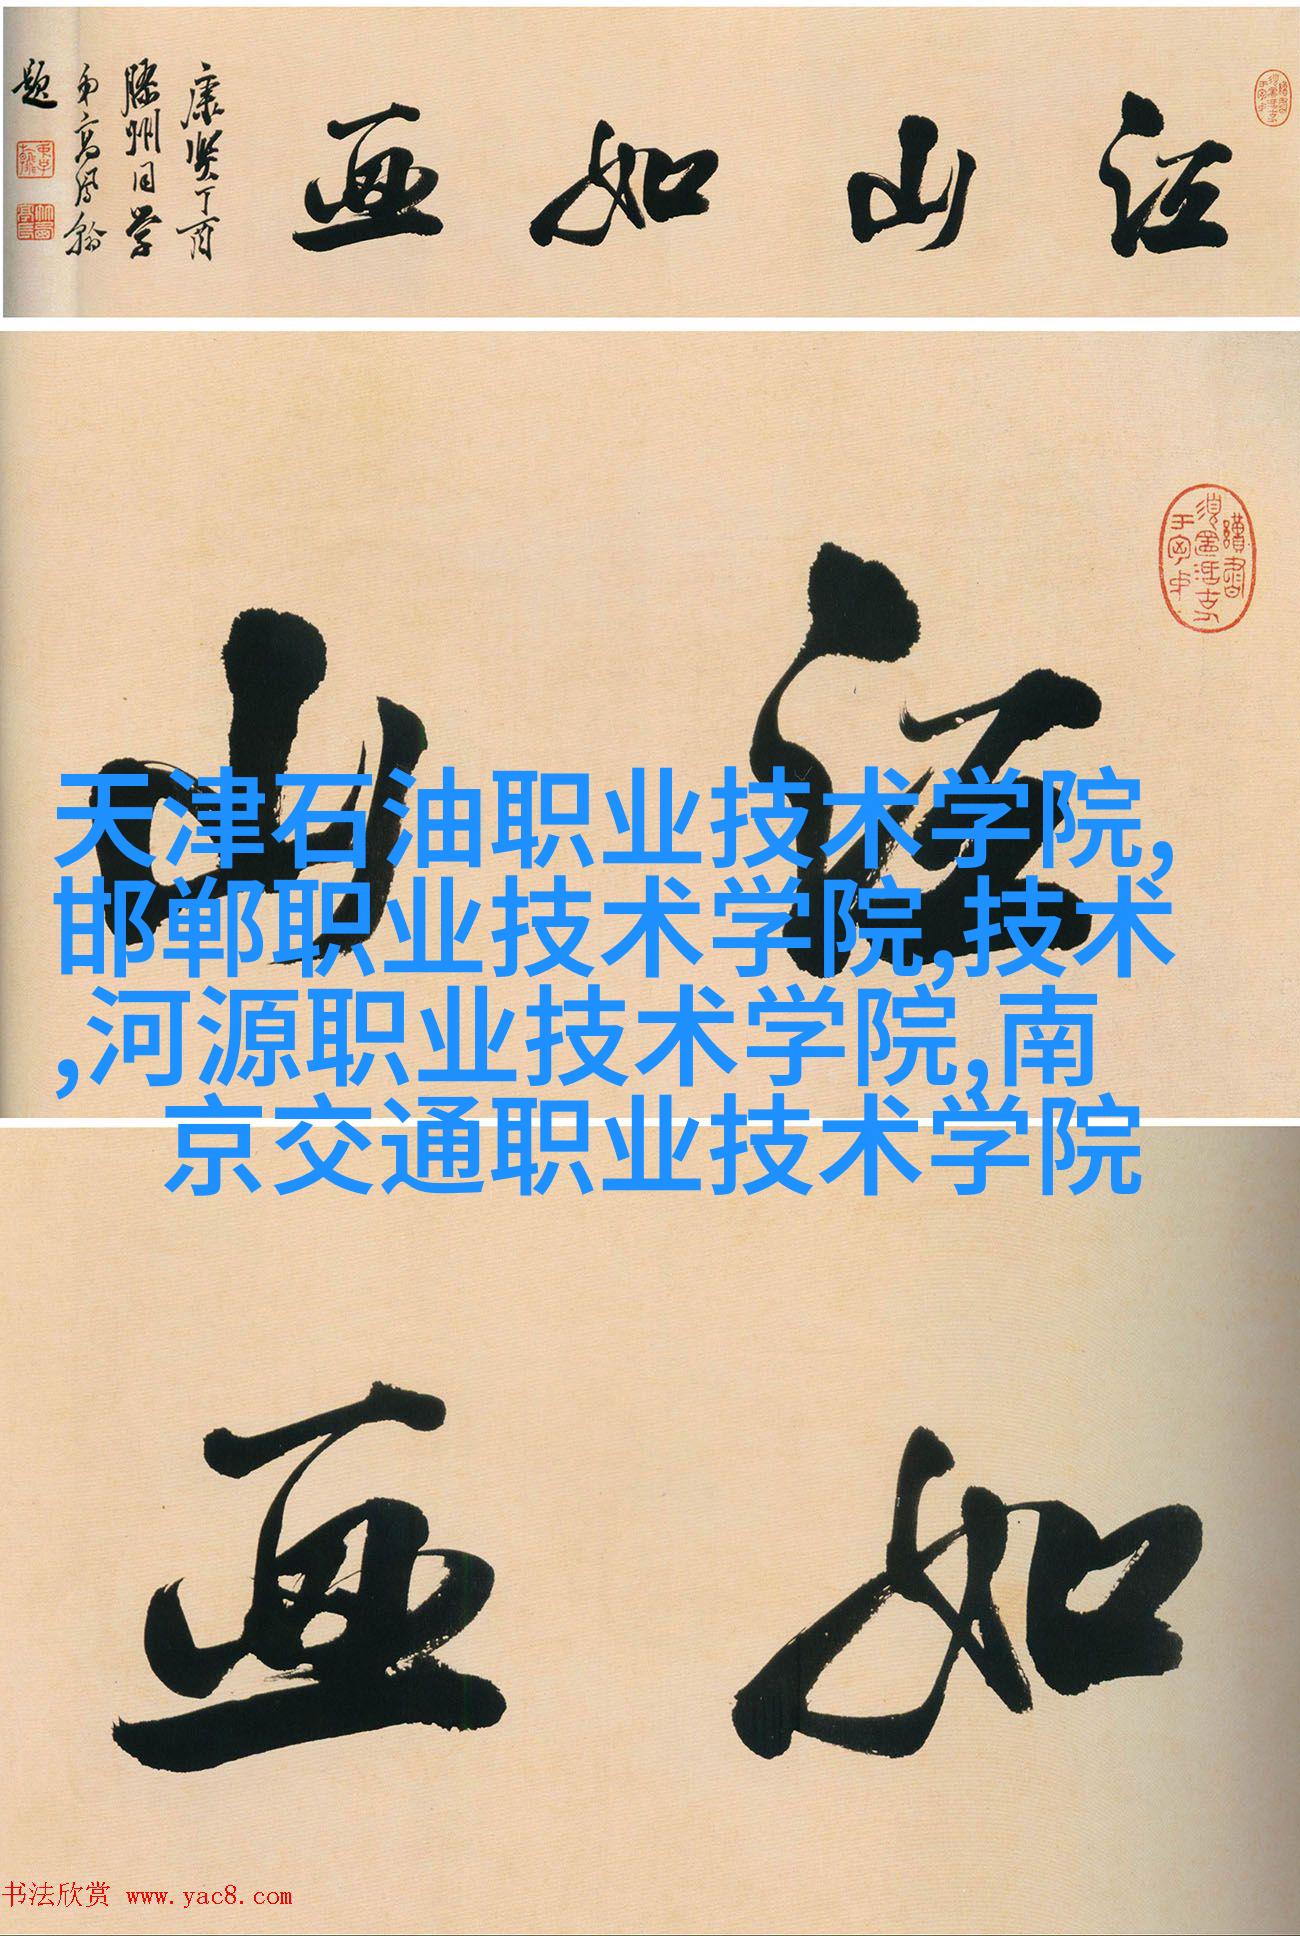 江山如画
康熙丁酉
滕州同学
弟高凤翰
题
江山
天津石油职业技术学院,
邯郸职业技术学院,技术
,河源职业技术学院,南
京交通职业技术学院
如画
书法欣赏 www.yac8.com